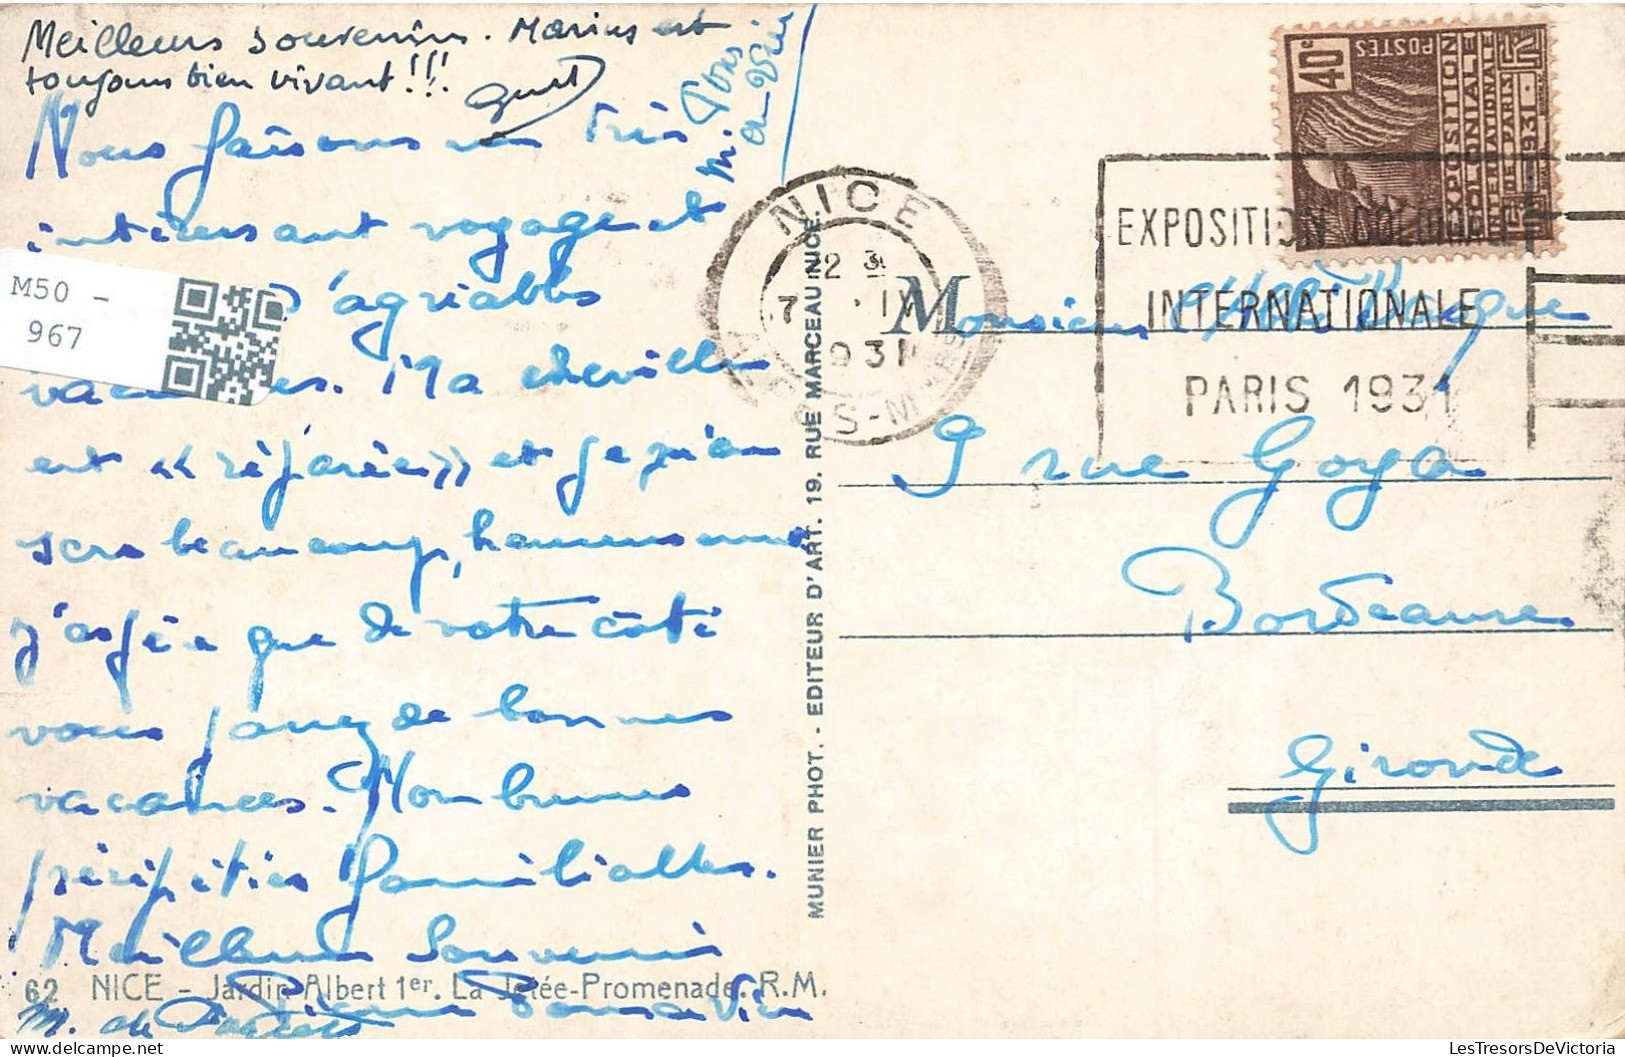 Meilleurs souvenirs. Marius est
toujours bien vivant!!!
Nous faisons un très
intéressant voyage et
d'agréables
vacances. Ma cheville
est « réparée » et je n'en
sera beaucoup, heureusement
j'espère que de votre côté
vous jouez de bonnes
vacances. Nombreuses
péripéties familiales.
Meilleurs Souvenirs
M50 -
967
62 NICE - Jardin Albert 1er. La Jetée-Promenade. R.M.
MUNIER PHOT. - EDITEUR D'ART. 19. RUE MARCEAU NICE.
NICE
1931
EXPOSITION COLONIALE
INTERNATIONALE
PARIS 1931
40c
POSTES
EXPOSITION
COLONIALE
INTERNATIONALE
DE PARIS
1931
Monsieur
9 rue Goya
Bordeaux
Gironde
LesTresorsDeVictoria.com